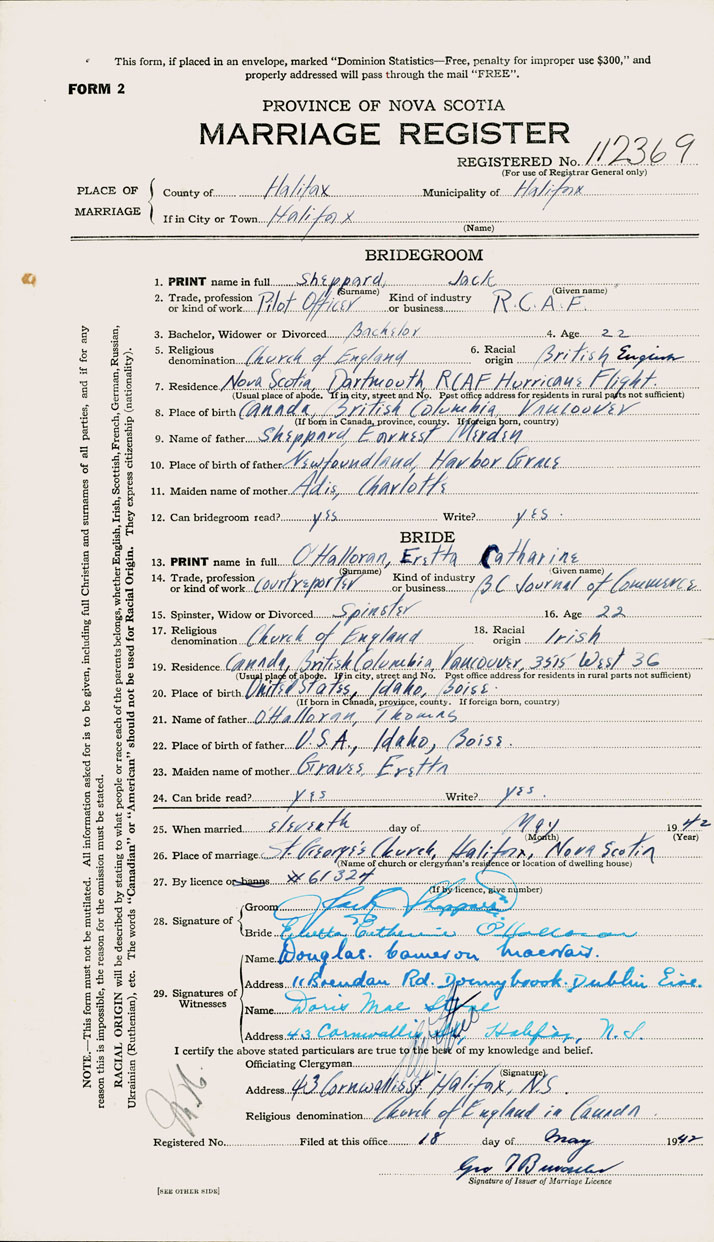 This form, if placed in an envelope, marked "Dominion Statistics—Free, penalty for improper use $300," and
properly addressed will pass through the mail "FREE".
FORM 2
PROVINCE OF NOVA SCOTIA
MARRIAGE REGISTER
REGISTERED No. 112369
(For use of Registrar General only)
PLACE OF MARRIAGE
County of Halifax Municipality of Halifax
If in City or Town Halifax
(Name)
BRIDEGROOM
1. PRINT name in full Sheppard, Jack
(Surname) (Given name)
2. Trade, profession or kind of work Pilot Officer Kind of industry or business R.C.A.F.
3. Bachelor, Widower or Divorced Bachelor 4. Age 22
5. Religious denomination Church of England 6. Racial origin British English
7. Residence Nova Scotia, Dartmouth, RCAF Hurricane Flight.
(Usual place of abode. If in city, street and No. Post office address for residents in rural parts not sufficient)
8. Place of birth Canada, British Columbia, Vancouver
(If born in Canada, province, county. If foreign born, country)
9. Name of father Sheppard, Earnest Merden
10. Place of birth of father Newfoundland, Harbor Grace
11. Maiden name of mother Adis, Charlotte
12. Can bridegroom read? yes Write? yes.
BRIDE
13. PRINT name in full O'Halloran, Eretta Catharine
(Surname) (Given name)
14. Trade, profession or kind of work Courtreporter Kind of industry or business BC Journal of Commerce
15. Spinster, Widow or Divorced Spinster 16. Age 22
17. Religious denomination Church of England 18. Racial origin Irish
19. Residence Canada, British Columbia, Vancouver, 3515 West 36
(Usual place of abode. If in city, street and No. Post office address for residents in rural parts not sufficient)
20. Place of birth United States, Idaho, Boise.
(If born in Canada, province, county. If foreign born, country)
21. Name of father O'Halloran, Thomas
22. Place of birth of father U.S.A., Idaho, Boise.
23. Maiden name of mother Graves Eretta
24. Can bride read? yes Write? yes.
25. When married eleventh day of May 1942
(Month) (Year)
26. Place of marriage St George's Church, Halifax, Nova Scotia
(Name of church or clergyman's residence or location of dwelling house)
27. By licence or banns #61324
(If by licence, give number)
28. Signature of
Groom Jack Sheppard
Bride Eretta Catherine O'Halloran
29. Signatures of Witnesses
Name Douglas. Cameron
Address 11 Brendan Rd. Donnybrook. Dublin Eire.
Name Doris Mae
Address 43 Cornwallis St, Halifax, N.S.
I certify the above stated particulars are true to the best of my knowledge and belief.
Officiating Clergyman
(Signature)
Address 43 Cornwallis St. Halifax, N.S.
Religious denomination Church of England in Canada.
Registered No. Filed at this office 18 day of May 1942
Signature of Issuer of Marriage Licence
[SEE OTHER SIDE]
NOTE.—This form must not be mutilated. All information asked for is to be given, including full Christian and surnames of all parties, and if for any
reason this is impossible, the reason for the omission must be stated.
RACIAL ORIGIN will be described by stating to what people or race each of the parents belongs, whether English, Irish, Scottish, French, German, Russian,
Ukrainian (Ruthenian), etc. The words "Canadian" or "American" should not be used for Racial Origin. They express citizenship (nationality).